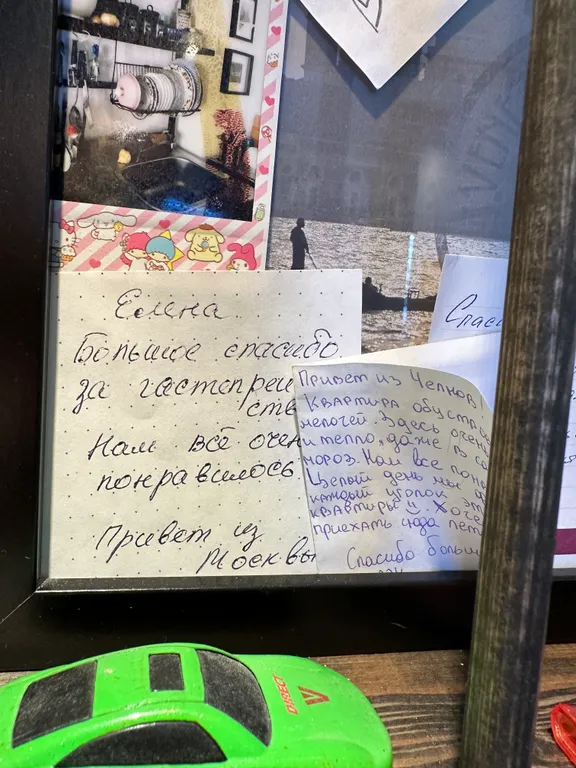 Елена
Большое спасибо
за гастепреи
ств
Нам всё очен
понравилось
Привет из
Москвы
Спаси
Привет из Челнов!
Квартира обустр
мелочей. Здесь очен
и тепло, даже в са
мороз. Нам все понр
Целый день мы
каждый уголок эт
квартиры
Хоче
приехать сюда лет
Спасибо больш
DIRECT
V